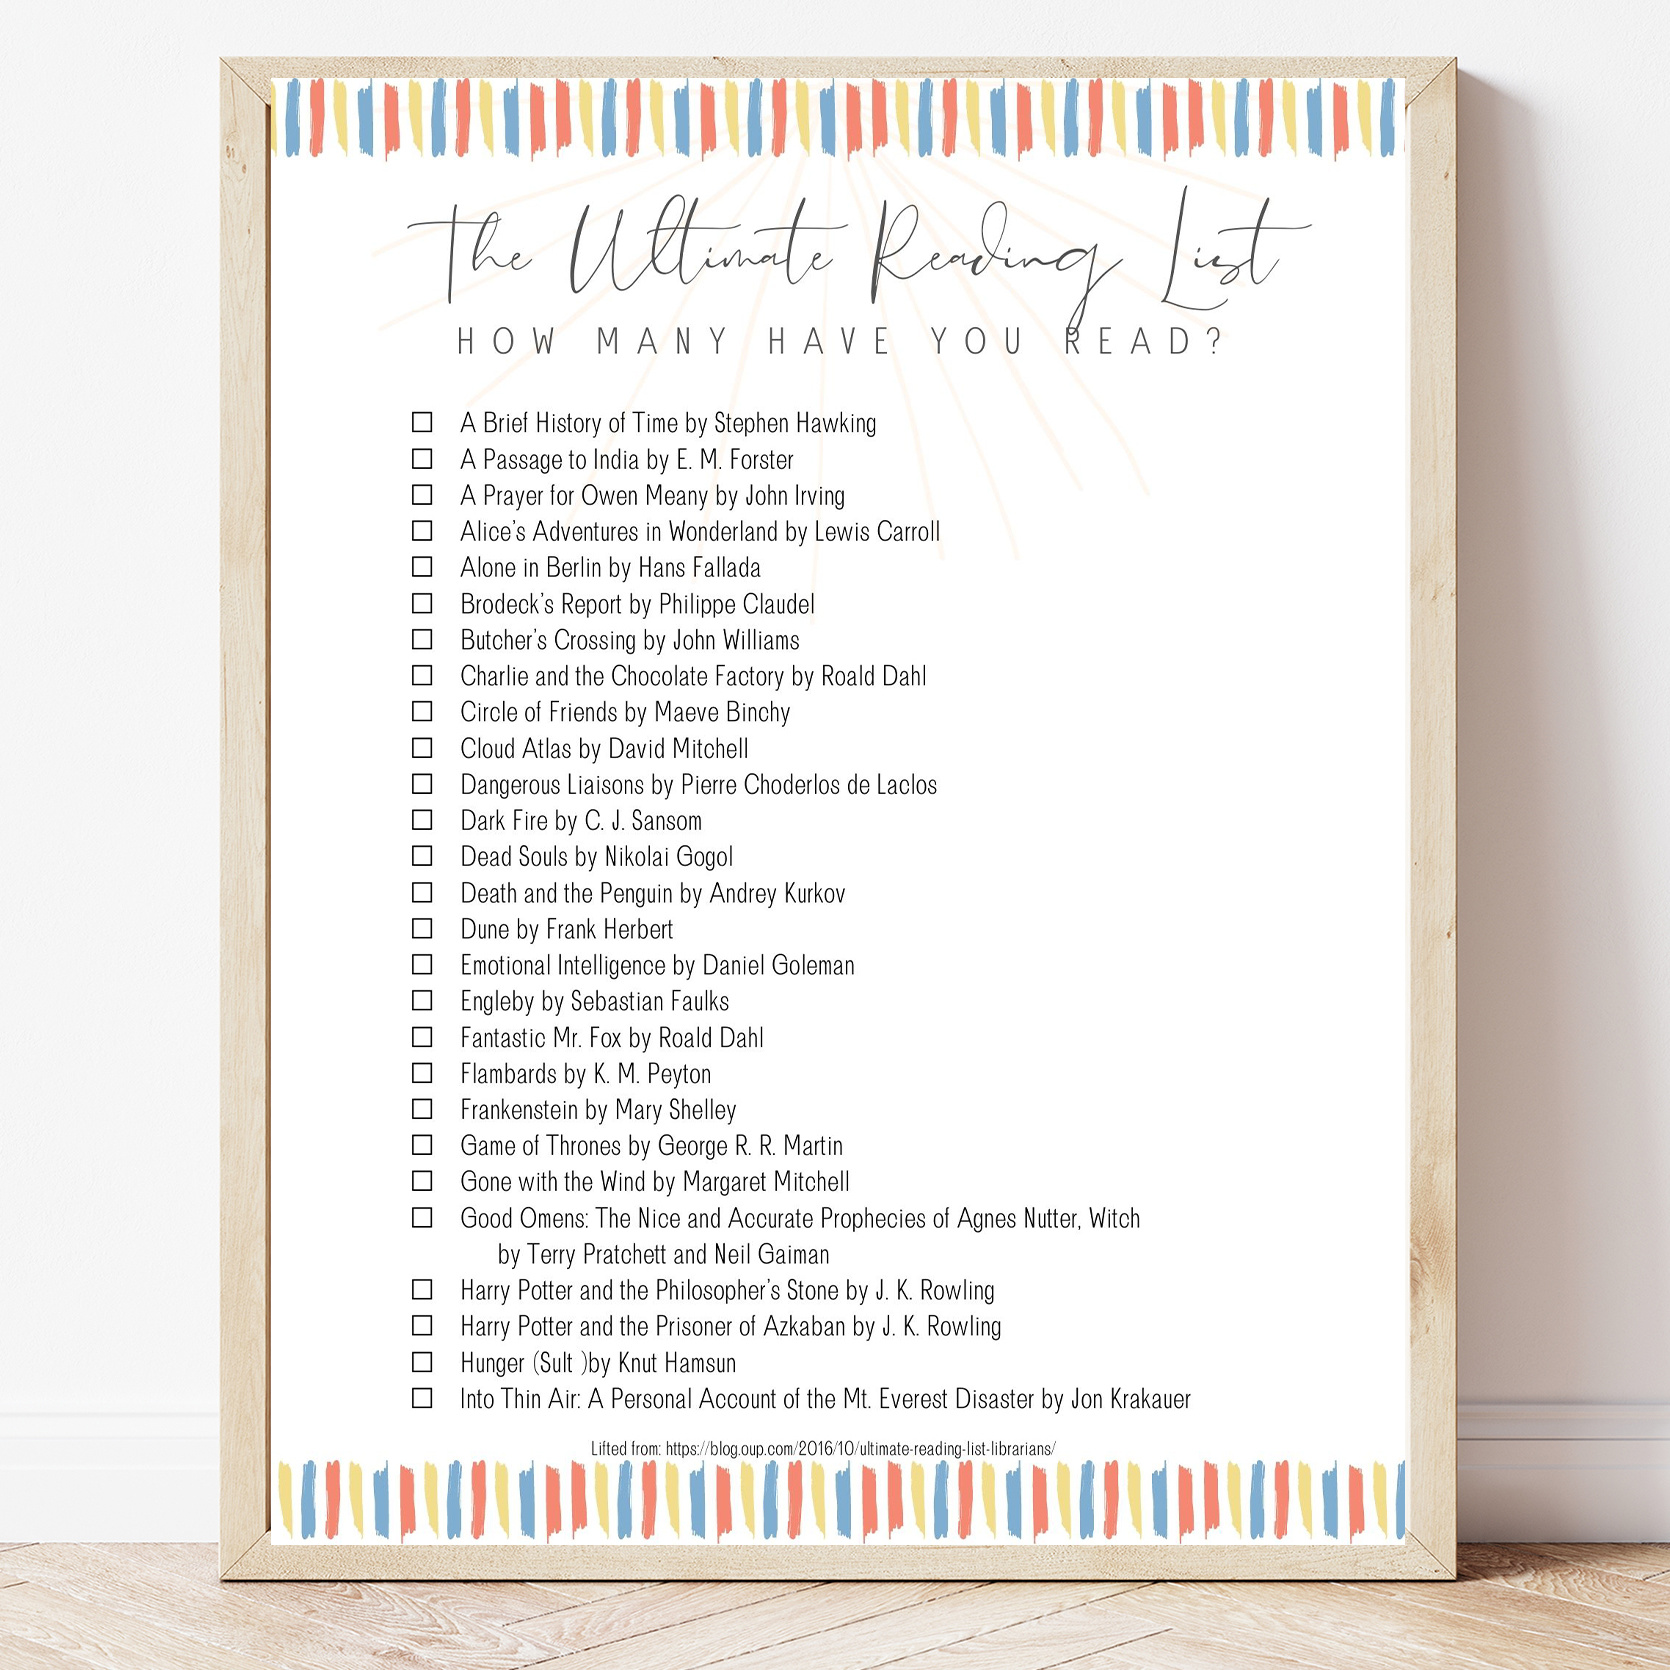 The Ultimate Reading List
HOW MANY HAVE YOU READ?
☐ A Brief History of Time by Stephen Hawking
☐ A Passage to India by E. M. Forster
☐ A Prayer for Owen Meany by John Irving
☐ Alice's Adventures in Wonderland by Lewis Carroll
☐ Alone in Berlin by Hans Fallada
☐ Brodeck's Report by Philippe Claudel
☐ Butcher's Crossing by John Williams
☐ Charlie and the Chocolate Factory by Roald Dahl
☐ Circle of Friends by Maeve Binchy
☐ Cloud Atlas by David Mitchell
☐ Dangerous Liaisons by Pierre Choderlos de Laclos
☐ Dark Fire by C. J. Sansom
☐ Dead Souls by Nikolai Gogol
☐ Death and the Penguin by Andrey Kurkov
☐ Dune by Frank Herbert
☐ Emotional Intelligence by Daniel Goleman
☐ Engleby by Sebastian Faulks
☐ Fantastic Mr. Fox by Roald Dahl
☐ Flambards by K. M. Peyton
☐ Frankenstein by Mary Shelley
☐ Game of Thrones by George R. R. Martin
☐ Gone with the Wind by Margaret Mitchell
☐ Good Omens: The Nice and Accurate Prophecies of Agnes Nutter, Witch
by Terry Pratchett and Neil Gaiman
☐ Harry Potter and the Philosopher's Stone by J. K. Rowling
☐ Harry Potter and the Prisoner of Azkaban by J. K. Rowling
☐ Hunger (Sult )by Knut Hamsun
☐ Into Thin Air: A Personal Account of the Mt. Everest Disaster by Jon Krakauer
Lifted from: https://blog.oup.com/2016/10/ultimate-reading-list-librarians/